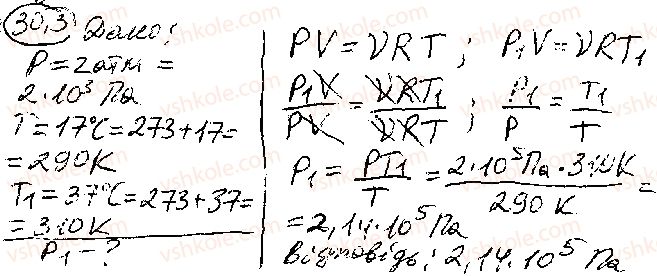 30.3 Дано:
P = 2 атм =
2·10⁵ Па
T = 17°C = 273+17 =
= 290 K
T₁ = 37°C = 273+37 =
= 310 K
P₁ - ?
PV = νRT ; P₁V = νRT₁
P₁V/PV = νRT₁/νRT ; P₁/P = T₁/T
P₁ = PT₁/T = 2·10⁵ Па · 310K / 290 K =
= 2,14·10⁵ Па
Відповідь: 2,14·10⁵ Па
vshkole.com